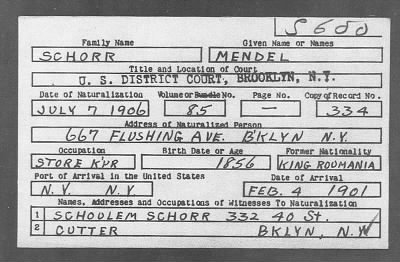 S600
Family Name Given Name or Names
SCHORR MENDEL
Title and Location of Court
U. S. DISTRICT COURT, BROOKLYN, N.Y.
Date of Naturalization Volume or Bundle No. Page No. Copy of Record No.
JULY 7 1906 85 — 334
Address of Naturalized Person
667 FLUSHING AVE. B'KLYN N.Y.
Occupation Birth Date or Age Former Nationality
STORE K'PR 1856 KING ROUMANIA
Port of Arrival in the United States Date of Arrival
N.Y. N.Y. FEB. 4 1901
Names, Addresses and Occupations of Witnesses To Naturalization
1 SCHOULEM SCHORR 332 40 St.
2 CUTTER BKLYN, N.Y.